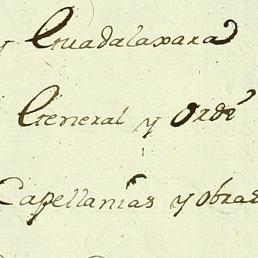 y Guadalaxara
General y Ordi
Capellanias y obras